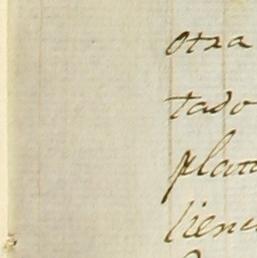 otra
tado
plan
lien